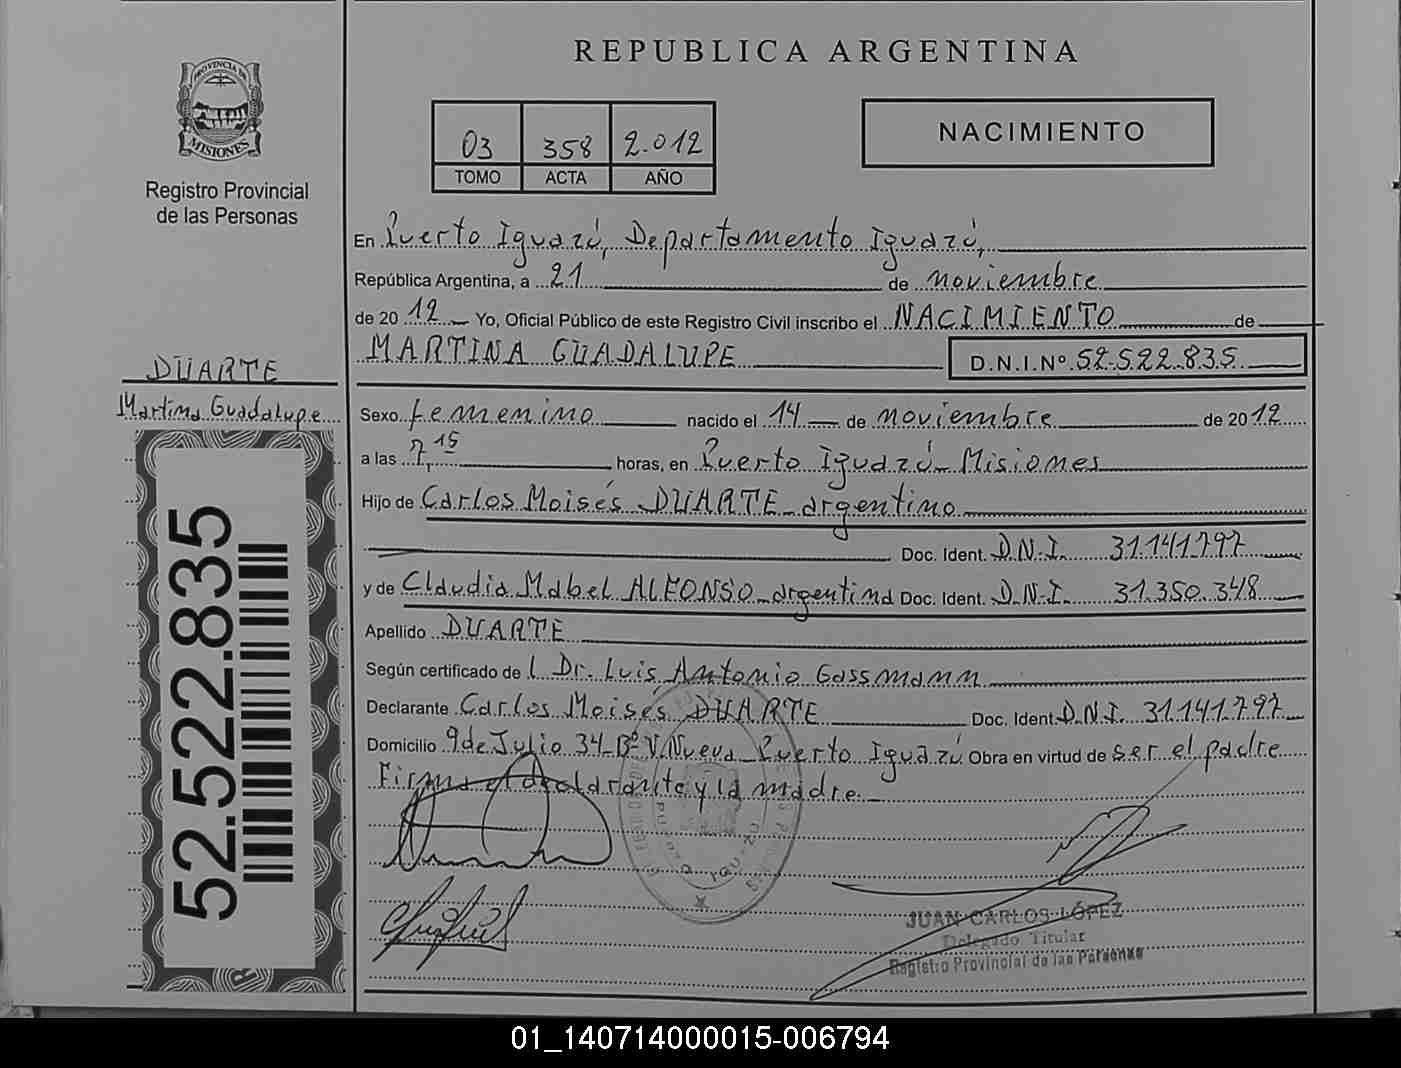 REPUBLICA ARGENTINA
PROVINCIA DE
MISIONES
Registro Provincial
de las Personas
03 358 2.012
TOMO ACTA AÑO
NACIMIENTO
En Puerto Iguazú, Departamento Iguazú,
República Argentina, a 21 de noviembre
de 20 12 Yo, Oficial Público de este Registro Civil inscribo el NACIMIENTO de
MARTINA GUADALUPE D.N.I.Nº 52.522.835
DUARTE
Martina Guadalupe
Sexo femenino nacido el 14 de noviembre de 2012
a las 7,15 horas, en Puerto Iguazú - Misiones
Hijo de Carlos Moisés DUARTE - argentino
Doc. Ident. D.N.I. 31.141.797
y de Claudia Mabel ALFONSO - argentina Doc. Ident. D.N.I. 31.350.348
Apellido DUARTE
Según certificado de l Dr. Luis Antonio Gassmann
Declarante Carlos Moisés DUARTE Doc. Ident. D.N.I. 31.141.797
Domicilio 9 de Julio 34 - Bº V. Nueva - Puerto Iguazú Obra en virtud de ser el padre
Firma el declarante y la madre. -
52.522.835
JUAN CARLOS LÓPEZ
Delegado Titular
Registro Provincial de las Personas
01_140714000015-006794